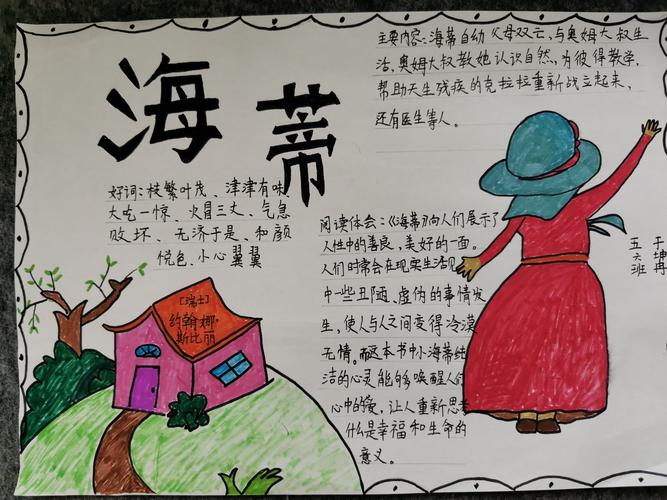 海蒂
主要内容:海蒂自幼父母双亡,与奥姆大叔生
活,奥姆大叔教她认识自然,为彼得教学,
帮助天生残疾的克拉拉重新战立起来,
还有医生等人。
好词:枝繁叶茂、津津有味、
大吃一惊、火冒三丈、气急
败坏、无济于是、和颜
悦色、小心翼翼
[瑞士]
约翰娜·
斯比丽
阅读体会:《海蒂》向人们展示了
人性中的善良,美好的一面。
人们时常会在现实生活见
中一些丑陋、虚伪的事情发
生,使人与人之间变得冷漠
无情。而这本书中小海蒂纯
洁的心灵能够唤醒人们
心中的爱,让人重新思考
什么是幸福和生命的
意义。
五六班
于坤冉